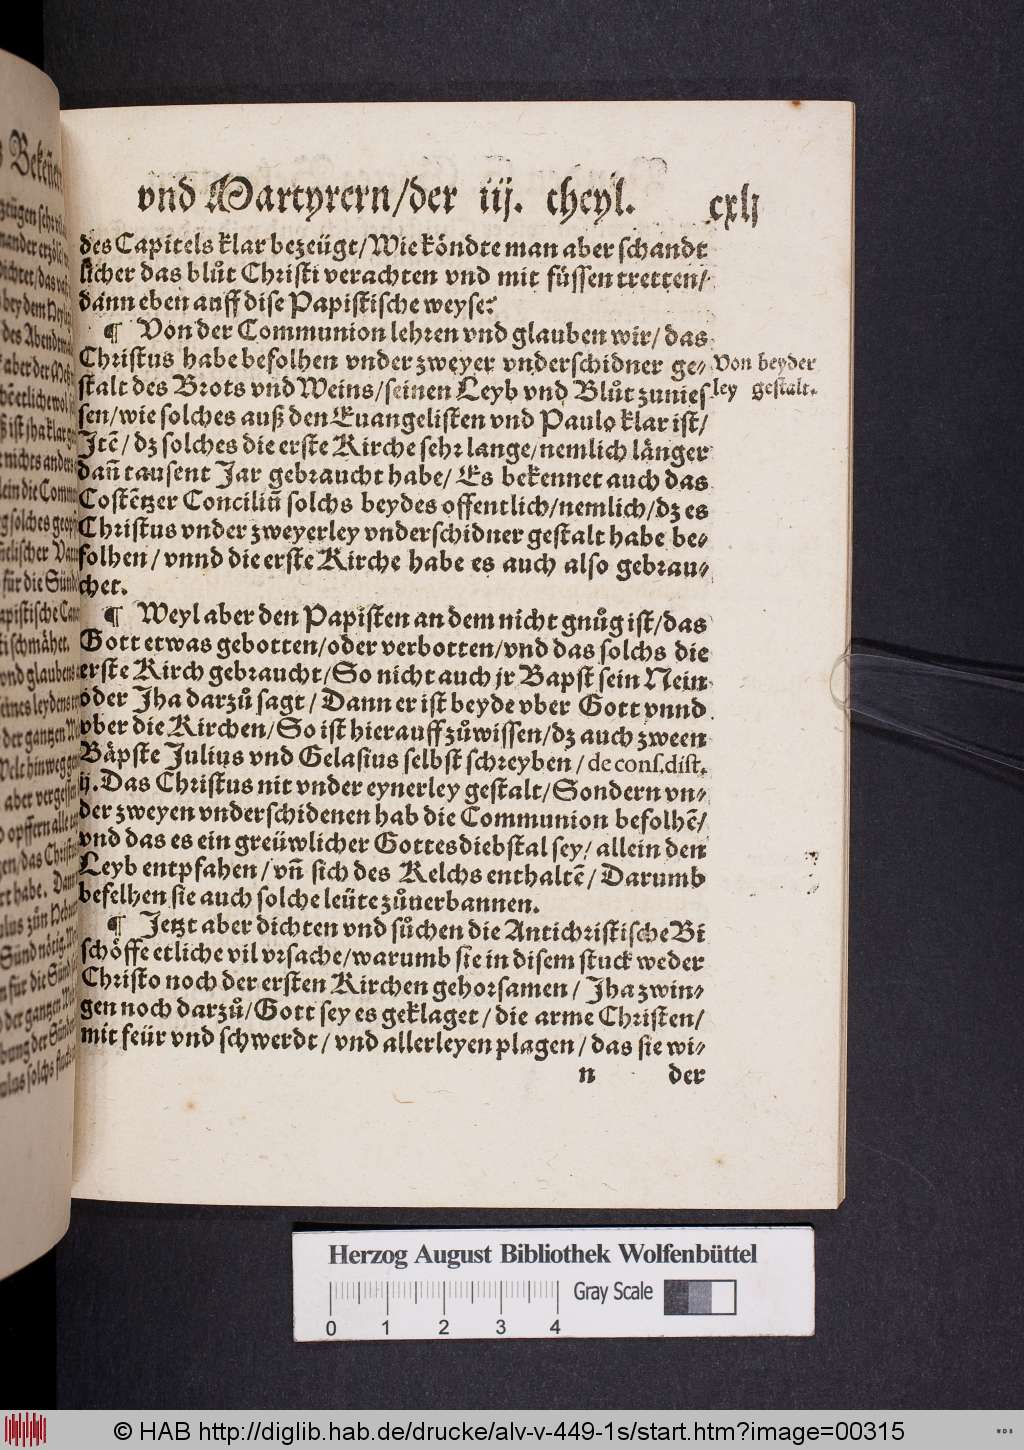 vnd Martyrern/der iij. theyl. cxlj
des Capitels klar bezeügt/Wie köndte man aber schandt
licher das blůt Christi verachten vnd mit füssen tretten/
dann eben auff dise Papistische weyse?
¶ Von der Communion lehren vnd glauben wir/ das
Christus habe befolhen vnder zweyer vnderschidner ge-
stalt des Brots vnd Weins/seinen Leyb vnd Blůt zunies
sen/wie solches auß den Euangelisten vnd Paulo klar ist/
Jtẽ/ dz solches die erste Kirche sehr lange/nemlich länger
dañ tausent Jar gebraucht habe/ Es bekennet auch das
Costẽtzer Conciliũ solchs beydes offentlich/nemlich/dz es
Christus vnder zweyerley vnderschidner gestalt habe be-
folhen/ vnnd die erste Kirche habe es auch also gebrau-
chet.
Von beyder
ley gestalt.
¶ Weyl aber den Papisten an dem nicht gnůg ist/das
Gott etwas gebotten/oder verbotten/vnd das solchs die
erste Kirch gebraucht/So nicht auch jr Bapst sein Nein
oder Jha darzů sagt/ Dann er ist beyde vber Gott vnnd
vber die Kirchen/So ist hierauff zůwissen/dz auch zween
Bäpste Julius vnd Gelasius selbst schreyben/ de cons.dist.
ij. Das Christus nit vnder eynerley gestalt/Sondern vn-
der zweyen vnderschidenen hab die Communion befolhẽ/
vnd das es ein greüwlicher Gottesdiebstal sey/ allein den
Leyb entpfahen/ vñ sich des Kelchs enthaltẽ/ Darumb
befelhen sie auch solche leüte zůuerbannen.
¶ Jetzt aber dichten vnd sůchen die Antichristische Bi
schöffe etliche vil vrsache/warumb sie in disem stuck weder
Christo noch der ersten Kirchen gehorsamen/ Jha zwin-
gen noch darzů/Gott sey es geklaget/ die arme Christen/
mit feür vnd schwerdt/ vnd allerleyen plagen/ das sie wi-
n der
Herzog August Bibliothek Wolfenbüttel
Gray Scale
0 1 2 3 4
© HAB http://diglib.hab.de/drucke/alv-v-449-1s/start.htm?image=00315